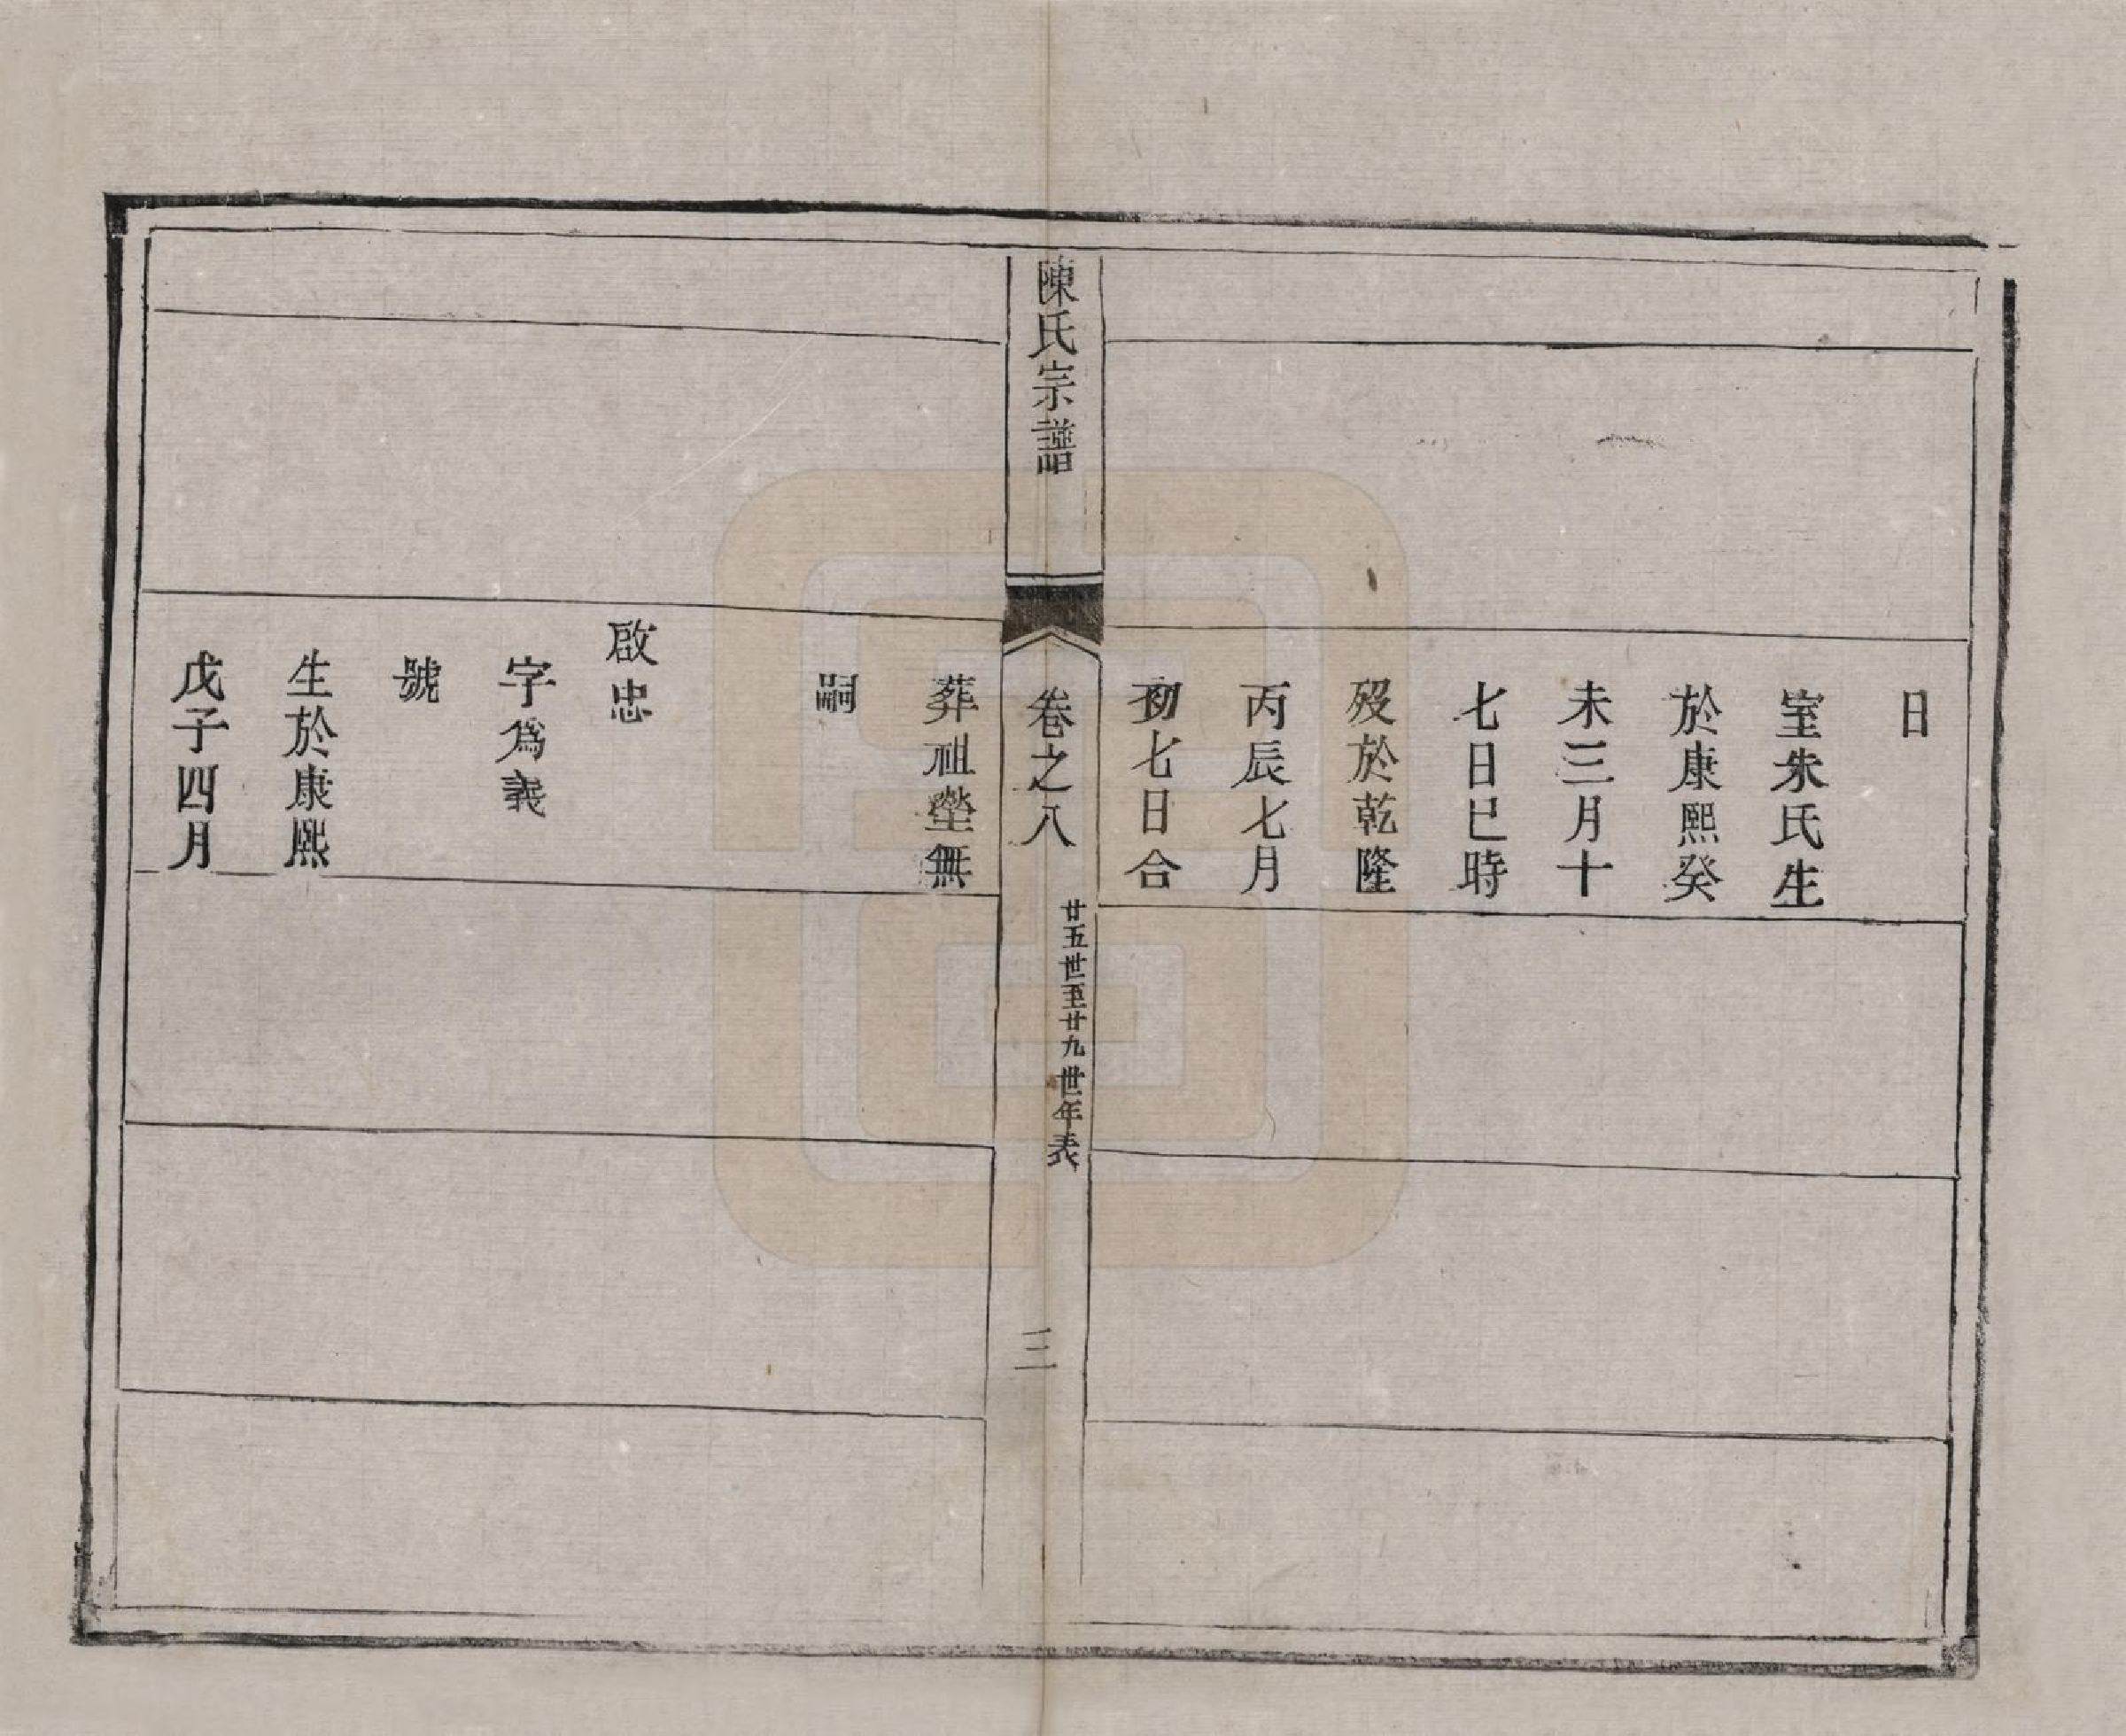 日
室朱氏生
於康熙癸
未三月十
七日巳時
歿於乾隆
丙辰七月
初七日合
陳氏宗譜
卷之八
廿五世至廿九世年表
三
葬祖塋無
嗣
啟忠
字為義
號
生於康熙
戊子四月